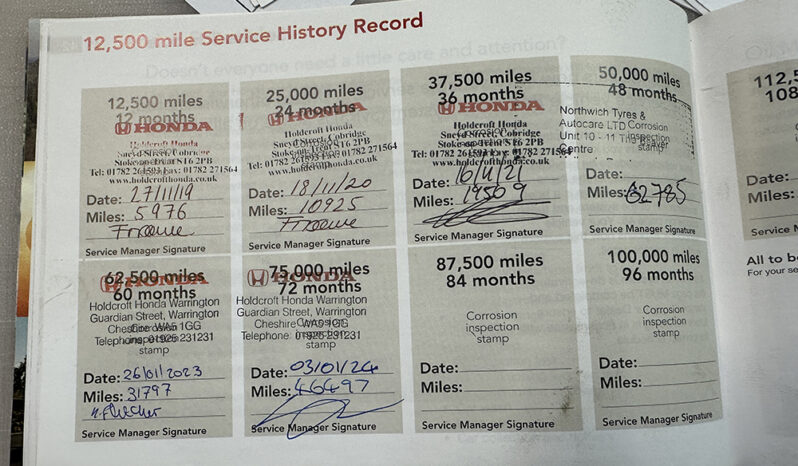 12,500 mile Service History Record
12,500 miles
12 months
HONDA
Holdcroft Honda
Sneyd Street, Cobridge
Stoke-on-Trent ST6 2PB
Tel: 01782 261593 Fax: 01782 271564
www.holdcrofthonda.co.uk
Date: 27/11/19
Miles: 5976
Service Manager Signature
25,000 miles
24 months
HONDA
Holdcroft Honda
Sneyd Street, Cobridge
Stoke-on-Trent ST6 2PB
Tel: 01782 261593 Fax: 01782 271564
www.holdcrofthonda.co.uk
Date: 18/11/20
Miles: 10925
Service Manager Signature
37,500 miles
36 months
HONDA
Holdcroft Honda
Corrosion
Sneyd Street, Cobridge
Stoke-on-Trent ST6 2PB
Tel: 01782 261593 Fax: 01782 271564
www.holdcrofthonda.co.uk
Date:
Miles: 19509
Service Manager Signature
50,000 miles
48 months
Northwich Tyres &
Autocare LTD Corrosion
Unit 10 - 11 inspection
Centre stamp
Date:
Miles: 62785
Service Manager Signature
62,500 miles
60 months
HONDA
Holdcroft Honda Warrington
Guardian Street, Warrington
Cheshire WA5 1GG
Telephone: 01925 231231
stamp
Date: 26/01/2023
Miles: 31797
Service Manager Signature
75,000 miles
72 months
HONDA
Holdcroft Honda Warrington
Guardian Street, Warrington
Cheshire WA5 1GG
Telephone: 01925 231231
stamp
Date: 03/01/24
Miles: 46497
Service Manager Signature
87,500 miles
84 months
Corrosion
inspection
stamp
Date:
Miles:
Service Manager Signature
100,000 miles
96 months
Corrosion
inspection
stamp
Date:
Miles:
Service Manager Signature
112,5
108
Date:
Miles:
Service Ma
All to b
For your se